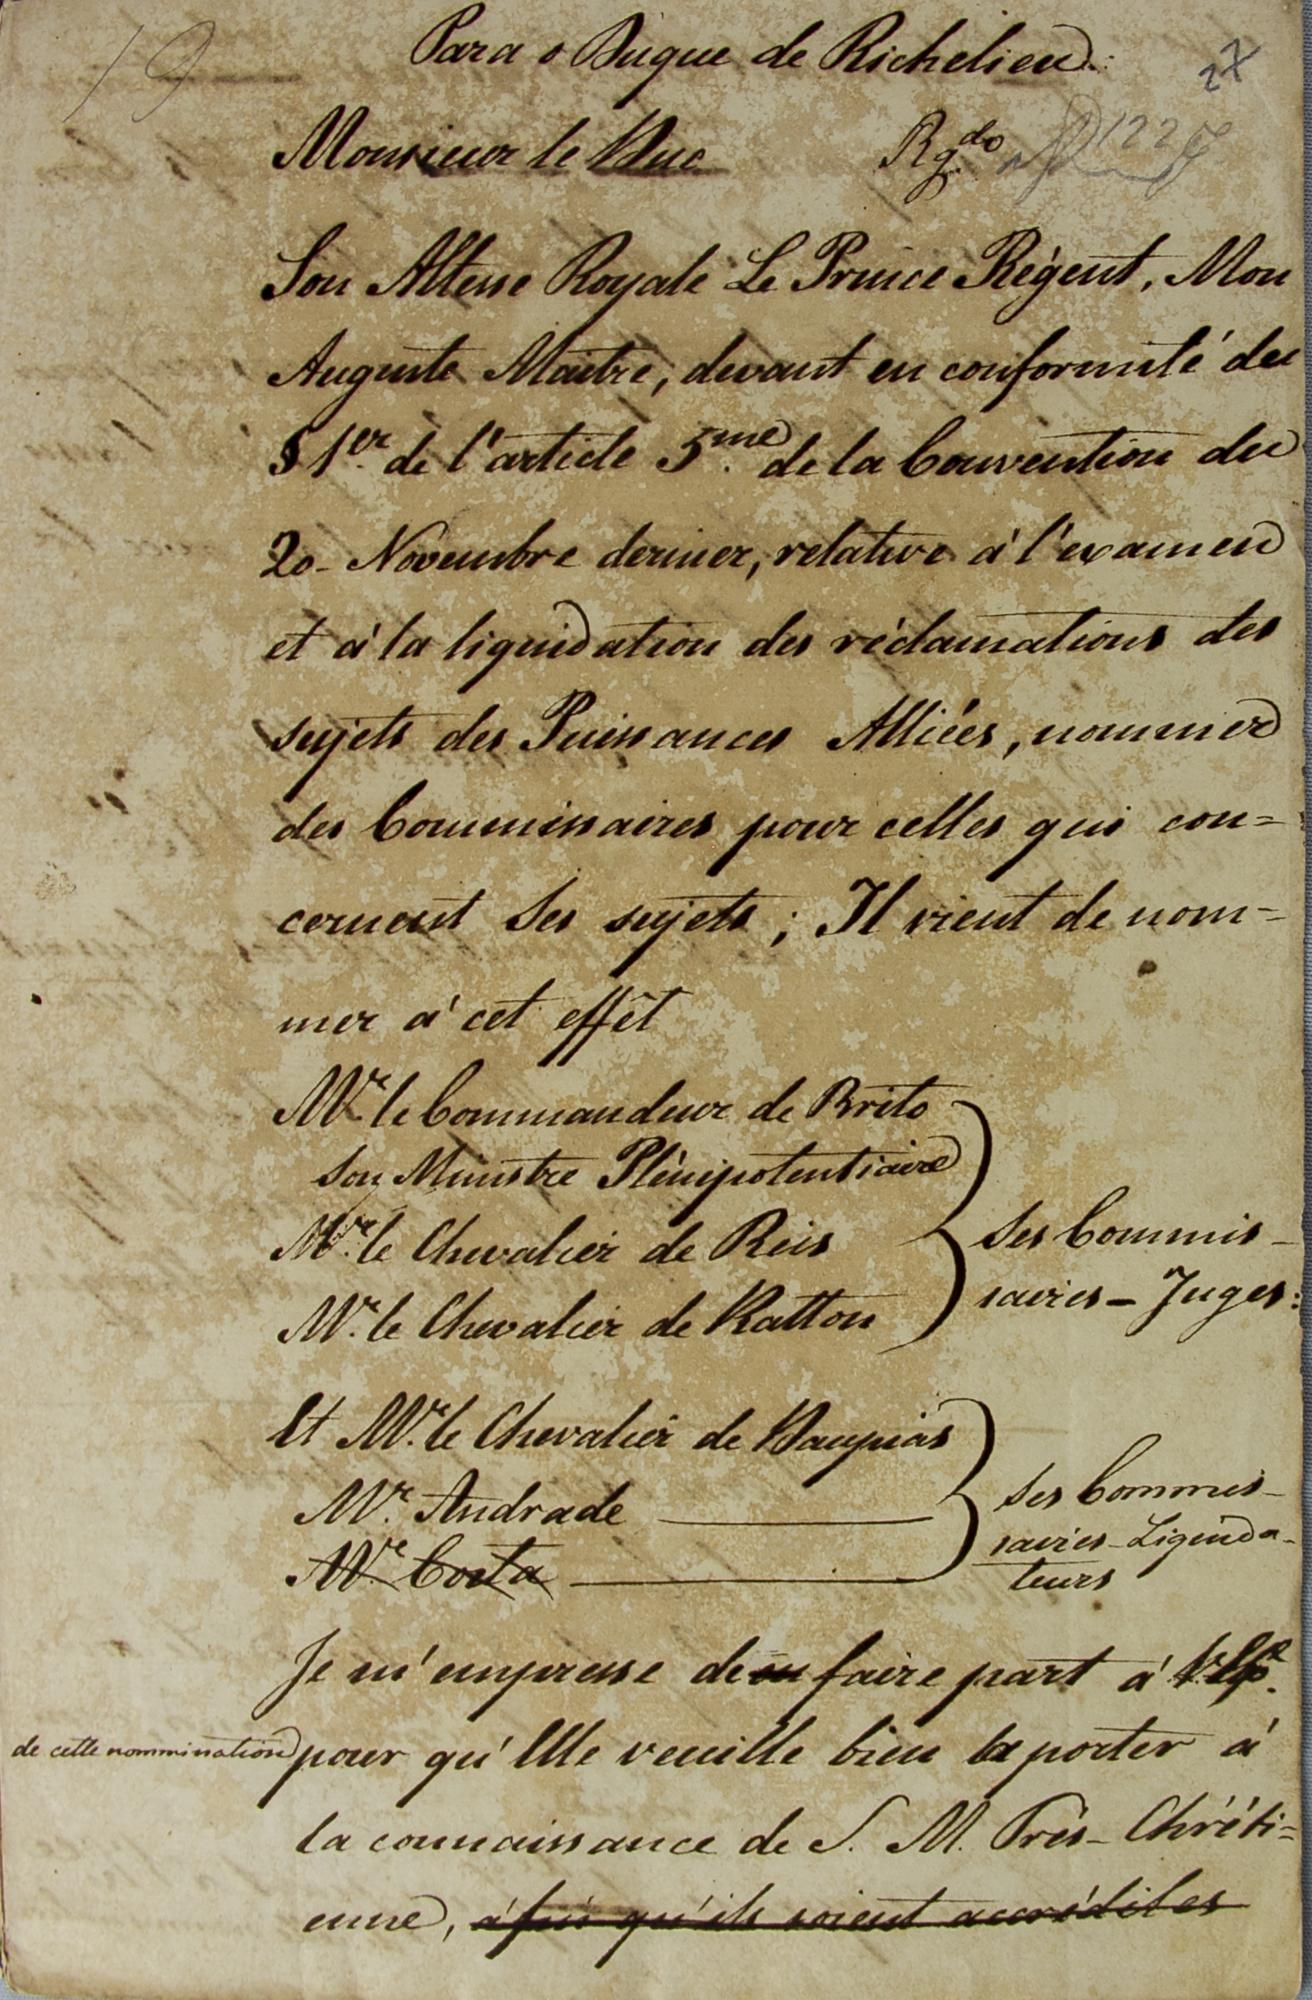 19
Para o Duque de Richelieu
27
Monsieur le Duc
Rg.do
Son Altesse Royale Le Prince Régent, Mon
Auguste Maître, devant en conformité du
§ 1.er de l'article 5.me de la Convention du
20 - Novembre dernier, relative à l'examen
et à la liquidation des réclamations des
sujets des Puissances Alliées, nommer
des Commissaires pour celles qui con=
cernent Ses sujets; Il vient de nom=
mer à cet effêt
Mr. le Commandeur de Brito
Son Ministre Plénipotentiaire
Mr. le Chevalier de Reis
Mr. le Chevalier de Ratton
Ses Commis-
saires - Juges:
Et Mr. le Chevalier de Daupiás
Mr. Andrade
Mr. Costa
Ses Commis-
saires - Liquida-
teurs
Je m'empresse de en faire part à V. Ex.e
de cette nommination pour qu'Elle veuille bien la porter à
la connaissance de S. M. Très-Chréti=
enne, à fin qu'ils soient accrédités